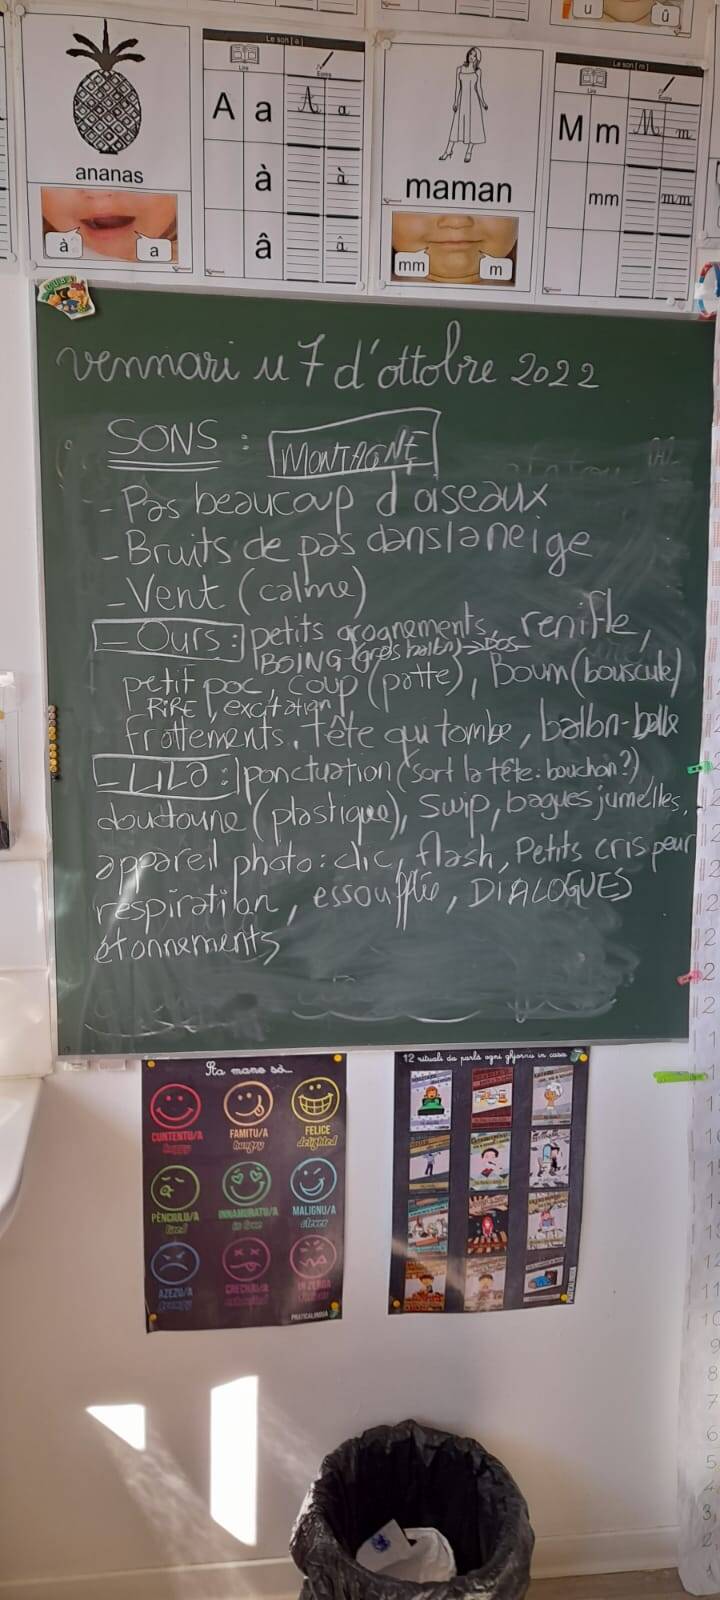 ananas
à
a
Le son [a]
Lire
Écrire
A a A a
à à
â â
maman
mm
m
Le son [m]
Lire
Écrire
M m M m
mm mm
u
û
vennari u 7 d'ottobre 2022
SONS : MONTAGNE
- Pas beaucoup d'oiseaux
- Bruits de pas dans la neige
- Vent (calme)
- Ours : petits grognements, renifle,
BOING (gros ballon) → DOS
petit poc, coup (patte), Boum (bouscule)
RIRE, excitation
frottements, tête qui tombe, ballon-balle
- LILA : ponctuation (sort la tête : bouchon?)
doudoune (plastique), swip, bagues jumelles,
appareil photo : clic, flash, Petits cris peur
respiration, essoufflée, DIALOGUES
étonnements
Sta mane sò...
CUNTENTU/A
happy
FAMITU/A
hungry
FELICE
delighted
PÈNCIULU/A
tired
INNAMURATU/A
in love
MALIGNU/A
clever
AZEZU/A
grumpy
IN ZERGA
PRATICALINGUA
12 rituali da parlà ogni ghjornu in casa
PRATICALINGUA